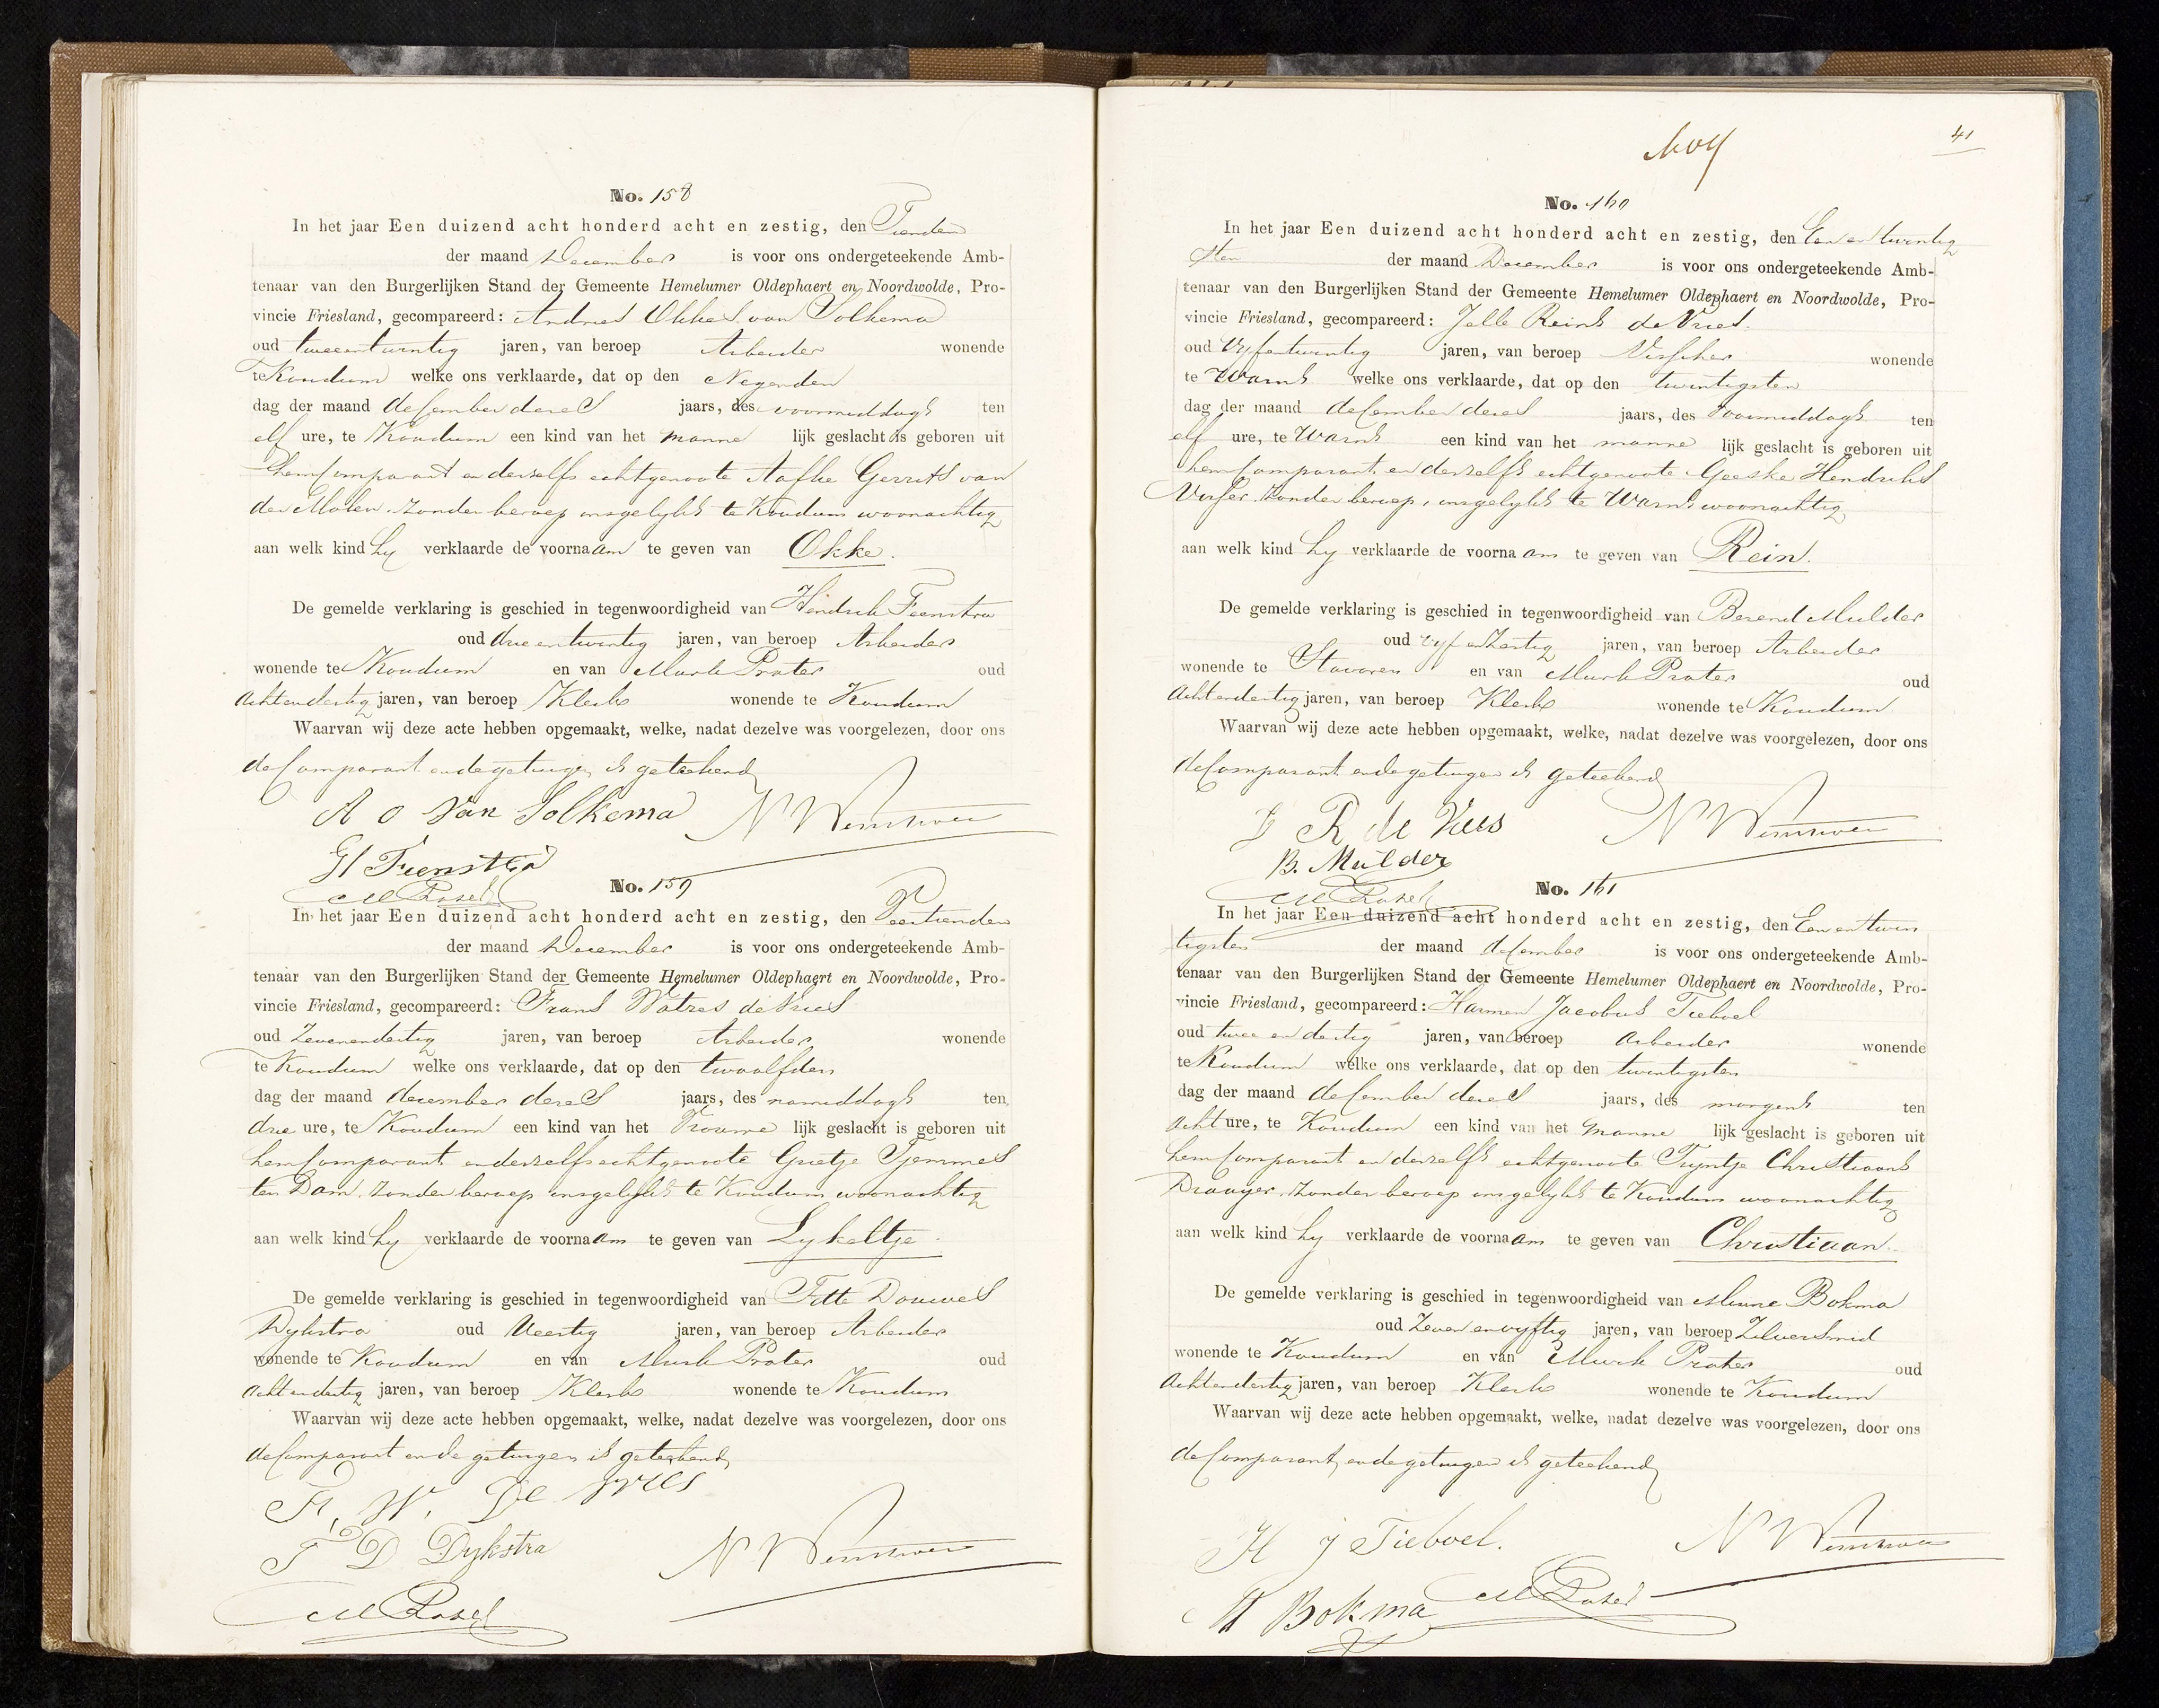 No. 158
In het jaar Een duizend acht honderd acht en zestig, den Tienden
der maand December is voor ons ondergeteekende Amb-
tenaar van den Burgerlijken Stand der Gemeente Hemelumer Oldephaert en Noordwolde, Pro-
vincie Friesland, gecompareerd: Andries Okkes van Solkema
oud tweeentwintig jaren, van beroep Arbeider wonende
te Koudum welke ons verklaarde, dat op den Negenden
dag der maand december dezes jaars, des voormiddags ten
elf ure, te Koudum een kind van het manne lijk geslacht is geboren uit
hem Comparant en deszelfs echtgenoote Aafke Gerrits van
der Molen zonder beroep insgelyks te Koudum woonachtig
aan welk kind hy verklaarde de voornaam te geven van Okke.
De gemelde verklaring is geschied in tegenwoordigheid van Hendrik Feenstra
oud drieentwintig jaren, van beroep Arbeider
wonende te Koudum en van Murk oud
achtendertig jaren, van beroep Klerk wonende te Koudum
Waarvan wij deze acte hebben opgemaakt, welke, nadat dezelve was voorgelezen, door ons
de Comparant en de getuigen is geteekend
A O van Solkema N
H Fienstra
M
No. 159
In het jaar Een duizend acht honderd acht en zestig, den Veertienden
der maand December is voor ons ondergeteekende Amb-
tenaar van den Burgerlijken Stand der Gemeente Hemelumer Oldephaert en Noordwolde, Pro-
vincie Friesland, gecompareerd: Frans Watzes de Vries
oud Zevenendertig jaren, van beroep Arbeider wonende
te Koudum welke ons verklaarde, dat op den twaalfden
dag der maand december dezes jaars, des namiddags ten
drie ure, te Koudum een kind van het Vrouwe lijk geslacht is geboren uit
hem Comparant en deszelfs echtgenoote Grietje Tjemmes
ten Dam zonder beroep insgelyks te Koudum woonachtig
aan welk kind hy verklaarde de voornaam te geven van Lykeltje.
De gemelde verklaring is geschied in tegenwoordigheid van Fette Douwes
Dykstra oud Veertig jaren, van beroep Arbeider
wonende te Koudum en van Murk oud
achtendertig jaren, van beroep Klerk wonende te Koudum
Waarvan wij deze acte hebben opgemaakt, welke, nadat dezelve was voorgelezen, door ons
de Comparant en de getuigen is geteekend
F, W. De Vries
F D Dykstra N
M
41
No. 160
In het jaar Een duizend acht honderd acht en zestig, den Een en twintig
sten der maand December is voor ons ondergeteekende Amb-
tenaar van den Burgerlijken Stand der Gemeente Hemelumer Oldephaert en Noordwolde, Pro-
vincie Friesland, gecompareerd: Jelle Reins de Vries.
oud Vyfentwintig jaren, van beroep Visscher wonende
te Warns welke ons verklaarde, dat op den twintigsten
dag der maand december dezes jaars, des Voormiddags ten
elf ure, te Warns een kind van het manne lijk geslacht is geboren uit
hem Comparant en deszelfs echtgenoote Geeske Hendriks
Visser zonder beroep, insgelyks te Warns woonachtig
aan welk kind hy verklaarde de voornaam te geven van Rein.
De gemelde verklaring is geschied in tegenwoordigheid van Berend Mulder
oud jaren, van beroep Arbeider
wonende te Stavoren en van Murk oud
achtendertig jaren, van beroep Klerk wonende te Koudum
Waarvan wij deze acte hebben opgemaakt, welke, nadat dezelve was voorgelezen, door ons
de Comparant en de getuigen is geteekend
J R de Vries N
B. Mulder
M
No. 161
In het jaar Een duizend acht honderd acht en zestig, den Een en twin
tigsten der maand december is voor ons ondergeteekende Amb-
tenaar van den Burgerlijken Stand der Gemeente Hemelumer Oldephaert en Noordwolde, Pro-
vincie Friesland, gecompareerd: Harmen Jacobus Tieboel
oud twee en dertig jaren, van beroep Arbeider wonende
te Koudum welke ons verklaarde, dat op den twintigsten
dag der maand december dezes jaars, des morgens ten
acht ure, te Koudum een kind van het manne lijk geslacht is geboren uit
hem Comparant en deszelfs echtgenoote Tryntje Christiaans
Draayer zonder beroep insgelyks te Koudum woonachtig
aan welk kind hy verklaarde de voornaam te geven van Christiaan.
De gemelde verklaring is geschied in tegenwoordigheid van Minne Bokma
oud Zeven envyftig jaren, van beroep Zilversmid
wonende te Koudum en van Murk oud
achtendertig jaren, van beroep Klerk wonende te Koudum
Waarvan wij deze acte hebben opgemaakt, welke, nadat dezelve was voorgelezen, door ons
de Comparant en de getuigen is geteekend
H J Tieboel. N
M Bokma M